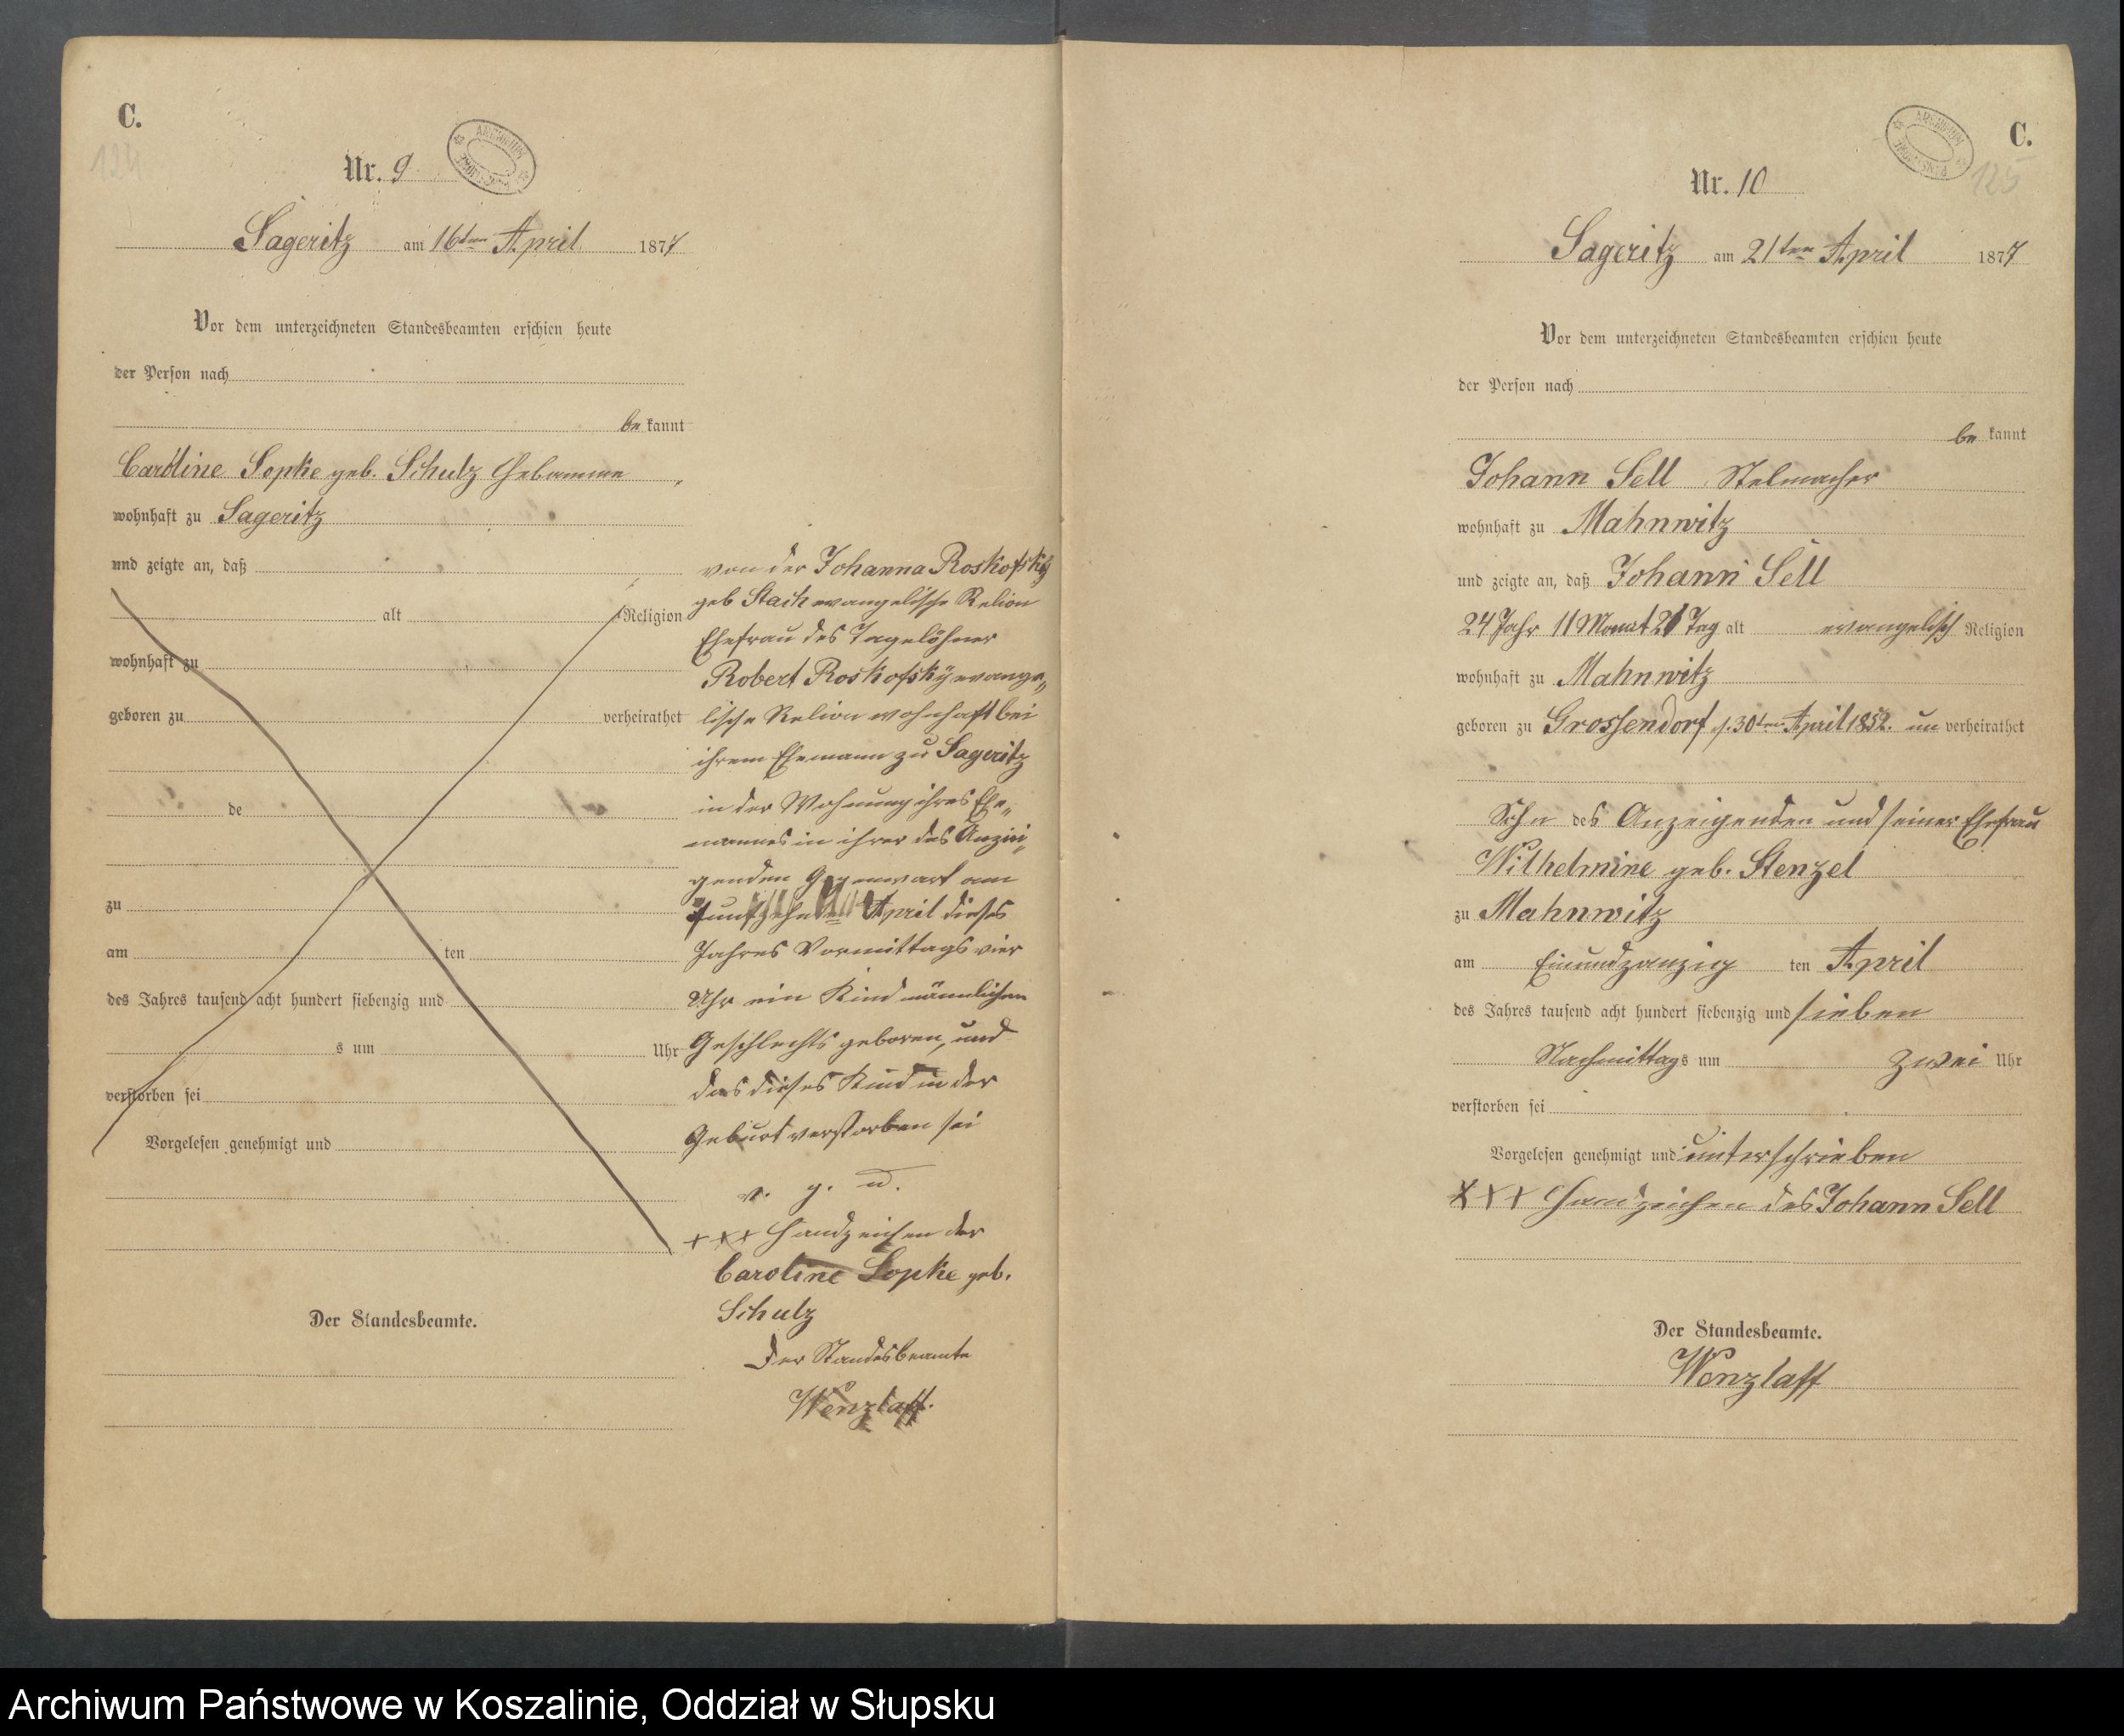 C.
124
Nr. 9
ARCHIWUM
Sageritz am 16ten April 1877
Vor dem unterzeichneten Standesbeamten erschien heute
der Person nach
be kannt
Caroline Sopke geb. Schulz Hebamme,
wohnhaft zu Sageritz
und zeigte an, daß
alt Religion
wohnhaft zu
geboren zu verheirathet
de
zu
am ten
des Jahres tausend acht hundert siebenzig und
s um Uhr
verstorben sei
Vorgelesen genehmigt und
Der Standesbeamte.
von der Johanna Roskofsky
geb Stach evangelische Relion
Ehefrau des Tagelöhner
Robert Roskofsky evange„
lische Relion wohnhaft bei
ihrem Ehemann zu Sageritz
in der Wohnung ihres Ehe„
mannes in ihrer des Anzei„
genden Gegenwart am
funfzehnten April dieses
Jahres Vormittags vier
Uhr ein Kind männlichen
Geschlechts geboren, und
das dieses Kind in der
Geburt verstorben sei
v. g. u.
+++ Handzeichen der
Caroline Sopke geb.
Schulz
Der Standesbeamte
Wenzlaff.
C.
125
Nr. 10
ARCHIWUM
Sageritz am 21ten April 1877
Vor dem unterzeichneten Standesbeamten erschien heute
der Person nach
be kannt
Johann Sell Stelmacher
wohnhaft zu Mahnwitz
und zeigte an, daß Johann Sell
24 Jahr 11 Monat 21 Tag alt evangelisch Religion
wohnhaft zu Mahnwitz
geboren zu Grossendorf d. 30ten April 1852. un verheirathet
Sohn des Anzeigenden und seiner Ehefrau
Wilhelmine geb. Stenzel
zu Mahnwitz
am Einundzanzig ten April
des Jahres tausend acht hundert siebenzig und sieben
Nachmittags um zwei Uhr
verstorben sei
Vorgelesen genehmigt und unterschrieben
+++ Handzeichen des Johann Sell
Der Standesbeamte.
Wenzlaff
Archiwum Państwowe w Koszalinie, Oddział w Słupsku